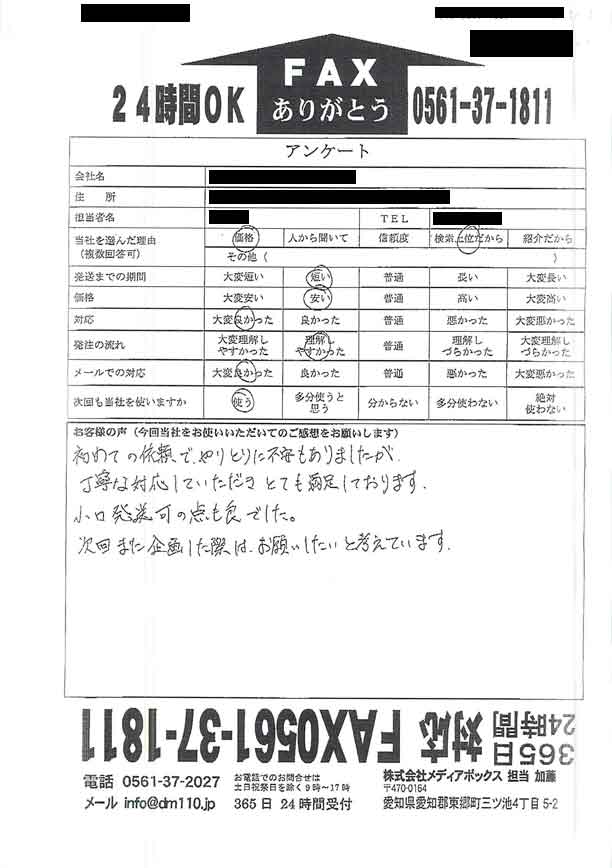 FAX
ありがとう
24時間OK
0561-37-1811
アンケート
会社名
住 所
担当者名 TEL
当社を選んだ理由(複数回答可) 価格 人から聞いて 信頼度 検索上位だから 紹介だから
その他( )
発送までの期間 大変短い 短い 普通 長い 大変長い
価格 大変安い 安い 普通 高い 大変高い
対応 大変良かった 良かった 普通 悪かった 大変悪かった
発注の流れ 大変理解しやすかった 理解しやすかった 普通 理解しづらかった 大変理解しづらかった
メールでの対応 大変良かった 良かった 普通 悪かった 大変悪かった
次回も当社を使いますか 使う 多分使うと思う 分からない 多分使わない 絶対使わない
お客様の声(今回当社をお使いいただいてのご感想をお願いします)
初めての依頼で、やりとりに不安もありましたが、
丁寧な対応していただき とても満足しております。
小口発送可の点も良でした。
次回また企画した際は、お願いしたいと考えています。
365日 24時間 対応 FAX0561-37-1811
電話 0561-37-2027
お電話でのお問合せは
土日祝祭日を除く9時~17時
株式会社メディアボックス 担当 加藤
〒470-0164
メール info@dm110.jp
365日 24時間受付
愛知県愛知郡東郷町三ツ池4丁目5-2